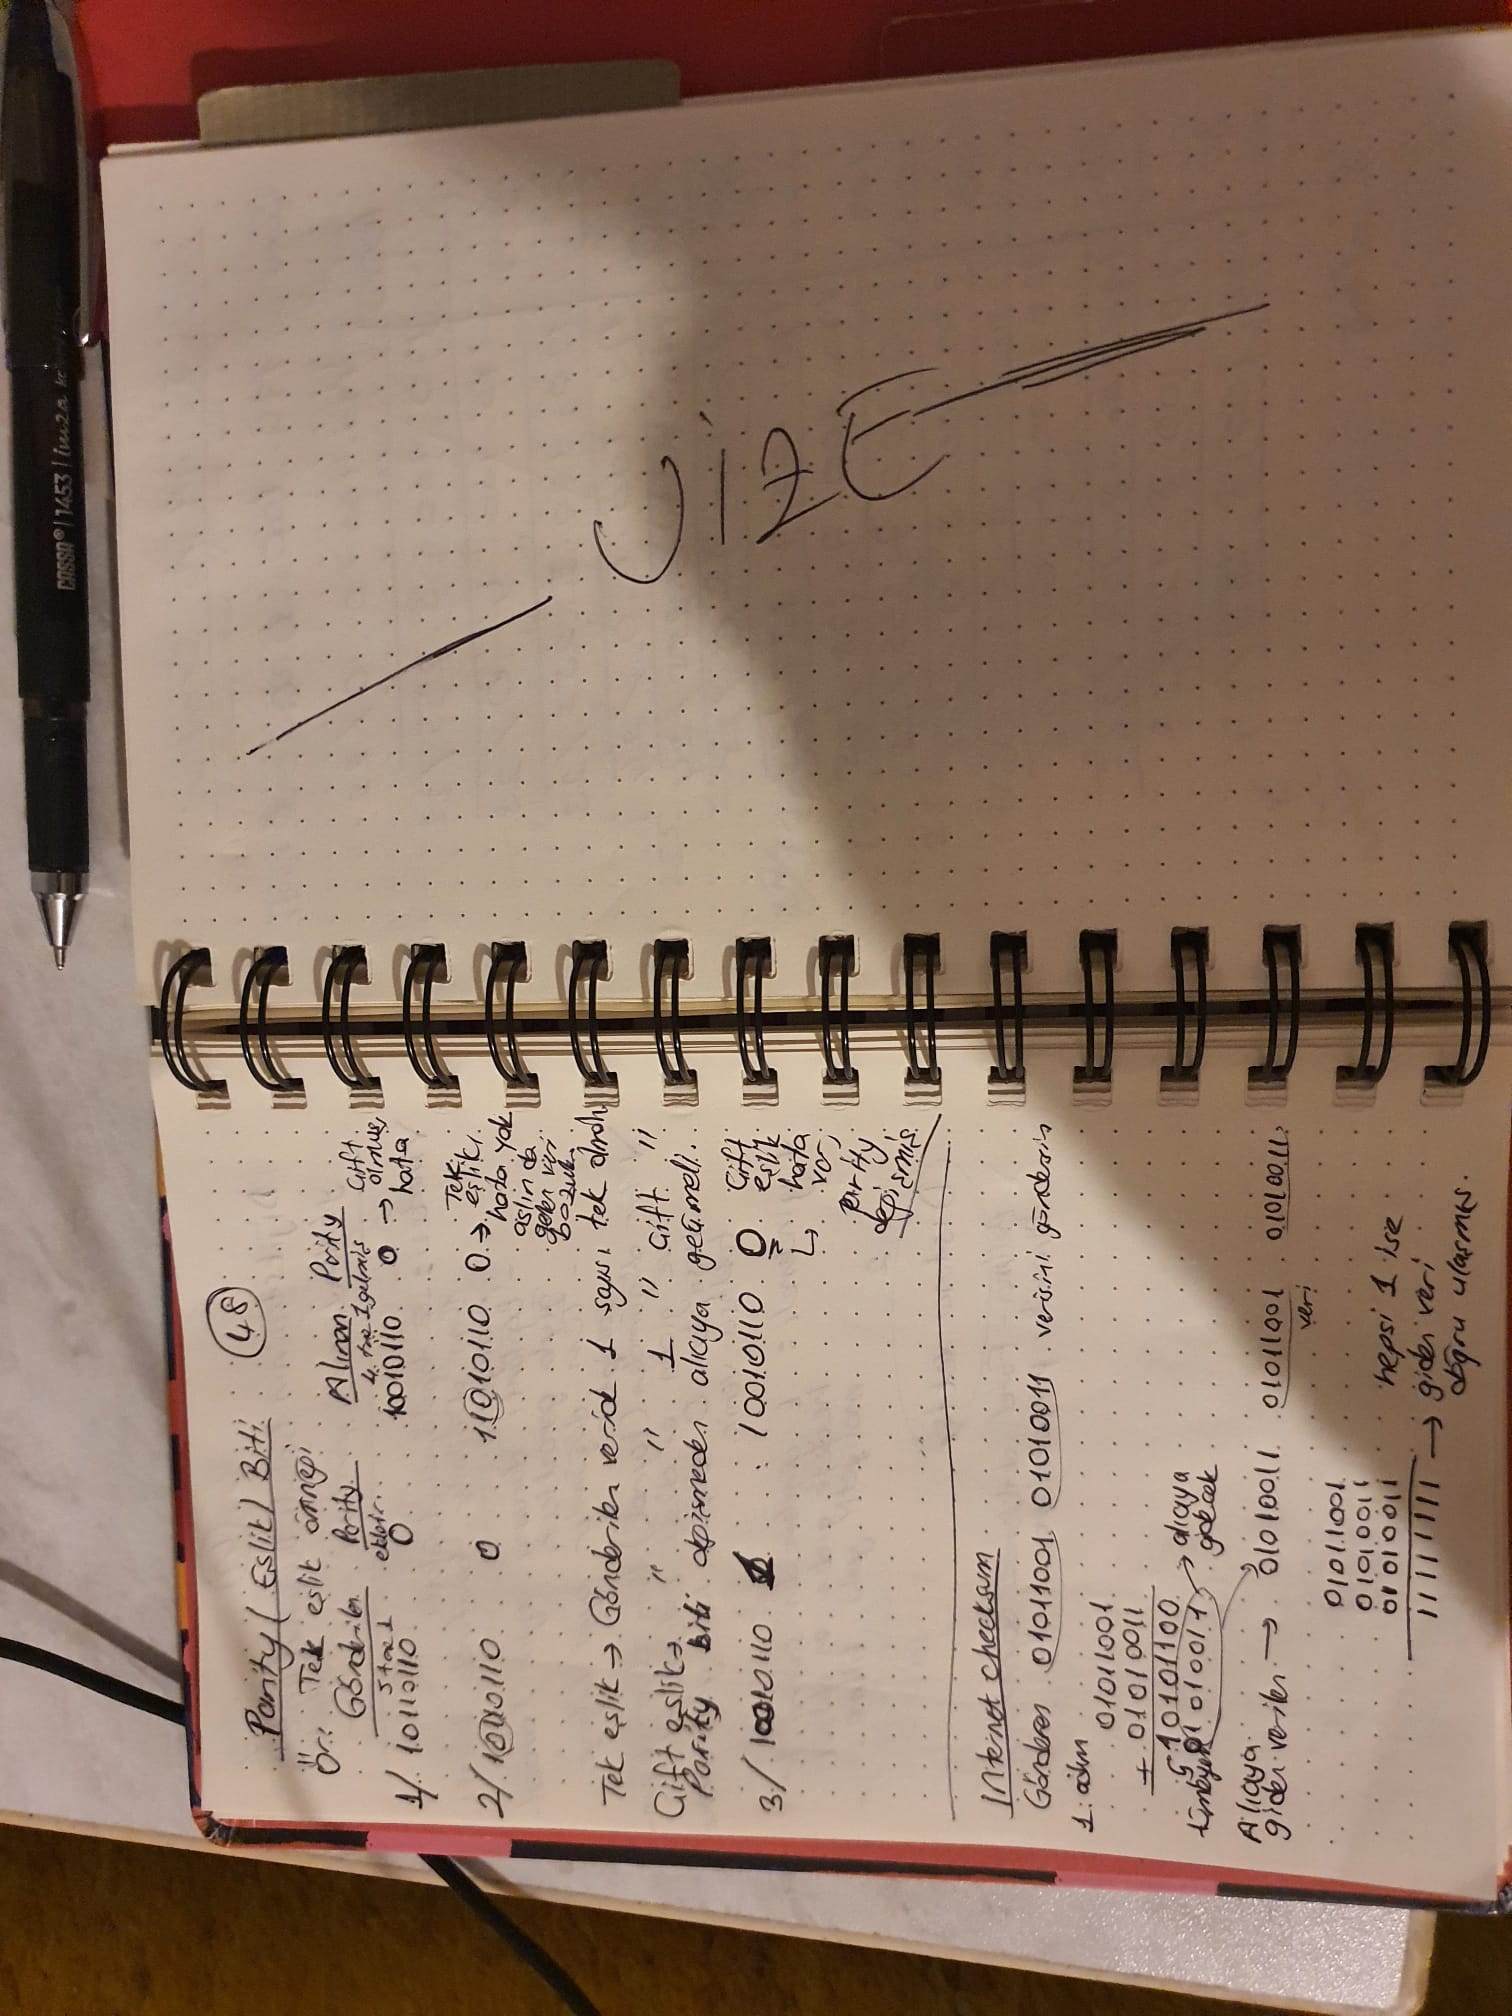 CASSA® | 1453 | imza
48
Parity (Eşlik) Biti
Ör: Tek eşlik örneği
Gönderilen Parity Alınan Parity
5 tane 1 ekler. 4 tane 1 gelmiş
1/ 10110110 0 10010110 0 → Çift olmuş, hata
2/ 10110110 0 11010110 0 → Tek eşlik, hata yok
aslında
gelen veri
bozuk.
Tek eşlik → Gönderilen veride 1 sayısı tek olmalı
Çift eşlik → " " 1 " Çift "
Parity biti değişmeden alıcaya geçmeli.
3/ 10010110 1 10010110 0 Çift
eşlik
hata
var,
parity
değişmiş.
Internet checksum
Gönderen 01011001 01010011 verisini göndersin
1. adım
01011001
+ 01010011
10101100
tümleyen 01010011 → alıcaya
gidecek
Alıcaya
giden veriler → 01010011 01011001 01010011
veri
01011001
01010011
01010011 hepsi 1 ise
11111111 → giden veri
doğru ulaşmış.